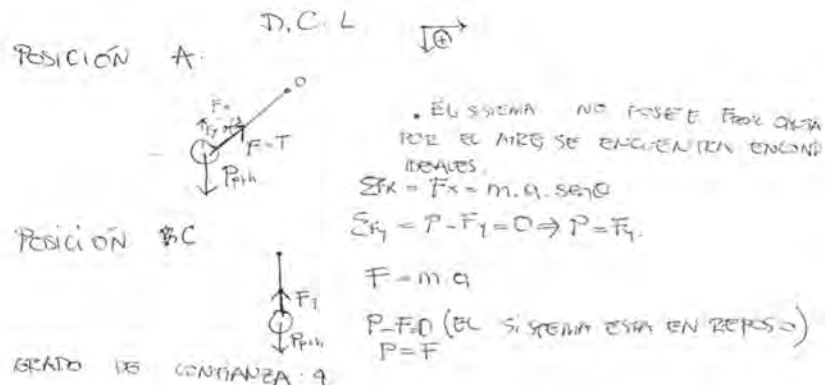 D.C.L
⊕
POSICIÓN A.
O
Fx
Fy
F=T
P
. EL SISTEMA NO POSEE
POR EL AIRE, SE ENCUENTRA EN COND
IDEALES.
ΣFx = Fx = m.a.senθ
ΣFy = P-Fy=0 ⇒ P=Fy.
POSICIÓN C
F
P
F=m.a
P-F=0 (EL SISTEMA ESTA EN REPOSO)
P=F
GRADO DE CONFIANZA. 9